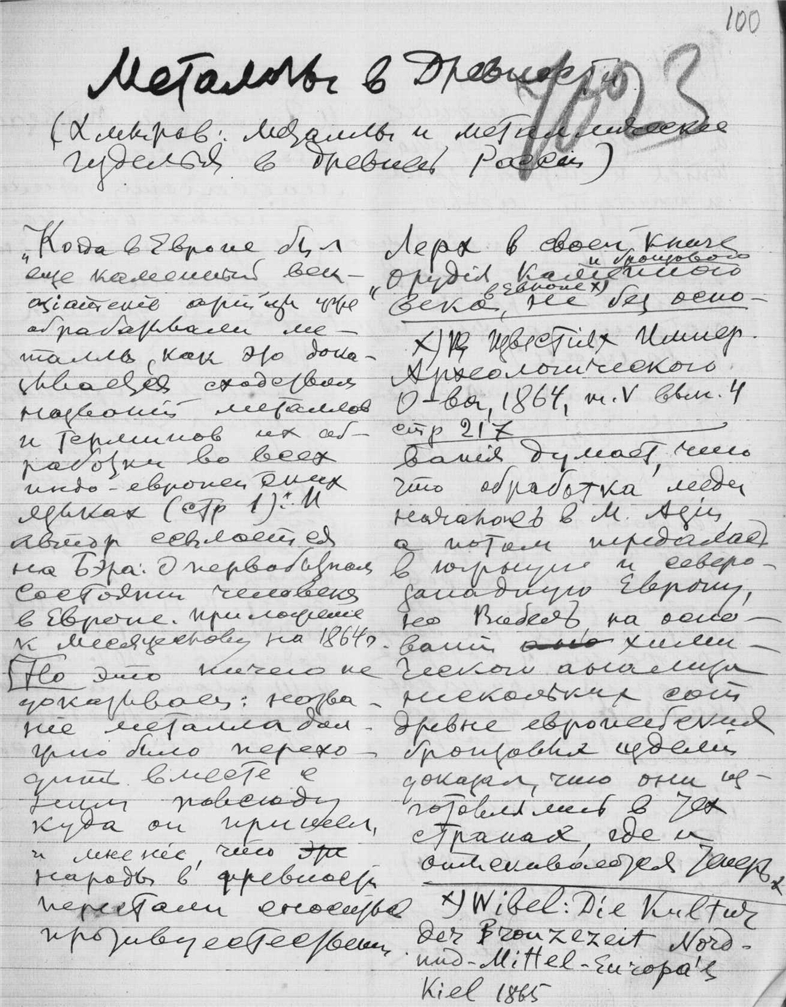 100
Металлы в Древности
7023
(Хмыров: металлы и металлические
изделия в древней России)
„Когда в Европе был
еще каменный век –
азіатские арийцы уже
обрабатывали ме–
таллы, как это дока–
зывается сходством
названий металлов
и терминов их об–
работки во всех
индо-европейских
языках (стр 1)." И
автор ссылается
на Бэра: О первобытном
состоянии человека
в Европе. приложение
к месяцеслову на 1864 г.
Но это ничего не
доказывает: назва–
ніе металла дол–
жно было перехо–
дить вместе с
ним повсюду
куда он пришел,
и мненіе, что эти
народы в древности
перестали сноситься
противуестественно.
Лерх в своей книге
„Орудія каменного и бронзового
века в Европе х), не без осно–
х) Из Известіях Импер.
Археологического
О-ва, 1864, т. V вып. 4
стр 217
ванія думает, что
что обработка меди
началось в М. Азіи
а потом передалась
в южную и северо–
западную Европу,
но Вибель на осно–
ваніи хими–
ческого анализа
нескольких сот
древне европейских
бронзовых изделій
доказал, что они из–
готовлялись в тех
странах, где и
отыскиваются теперь х
х) Wibel: Die Kultur
der Bronzezeit Nord–
und-Mittel-Europa's
Kiel 1865